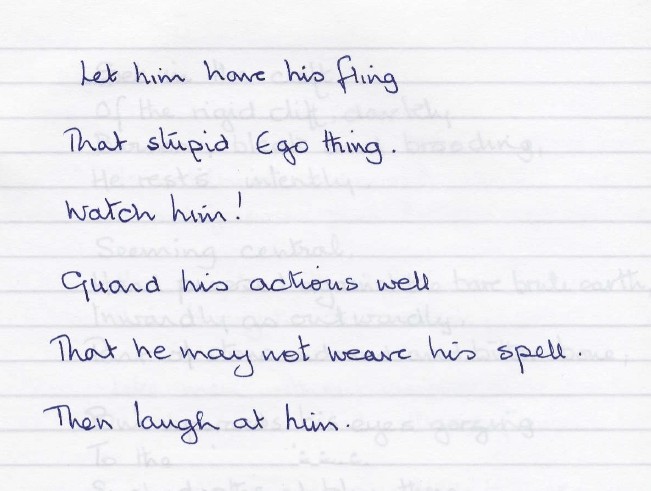 Let him have his fling
That stupid Ego thing.
Watch him!
Guard his actions well
That he may not weave his spell.
Then laugh at him.